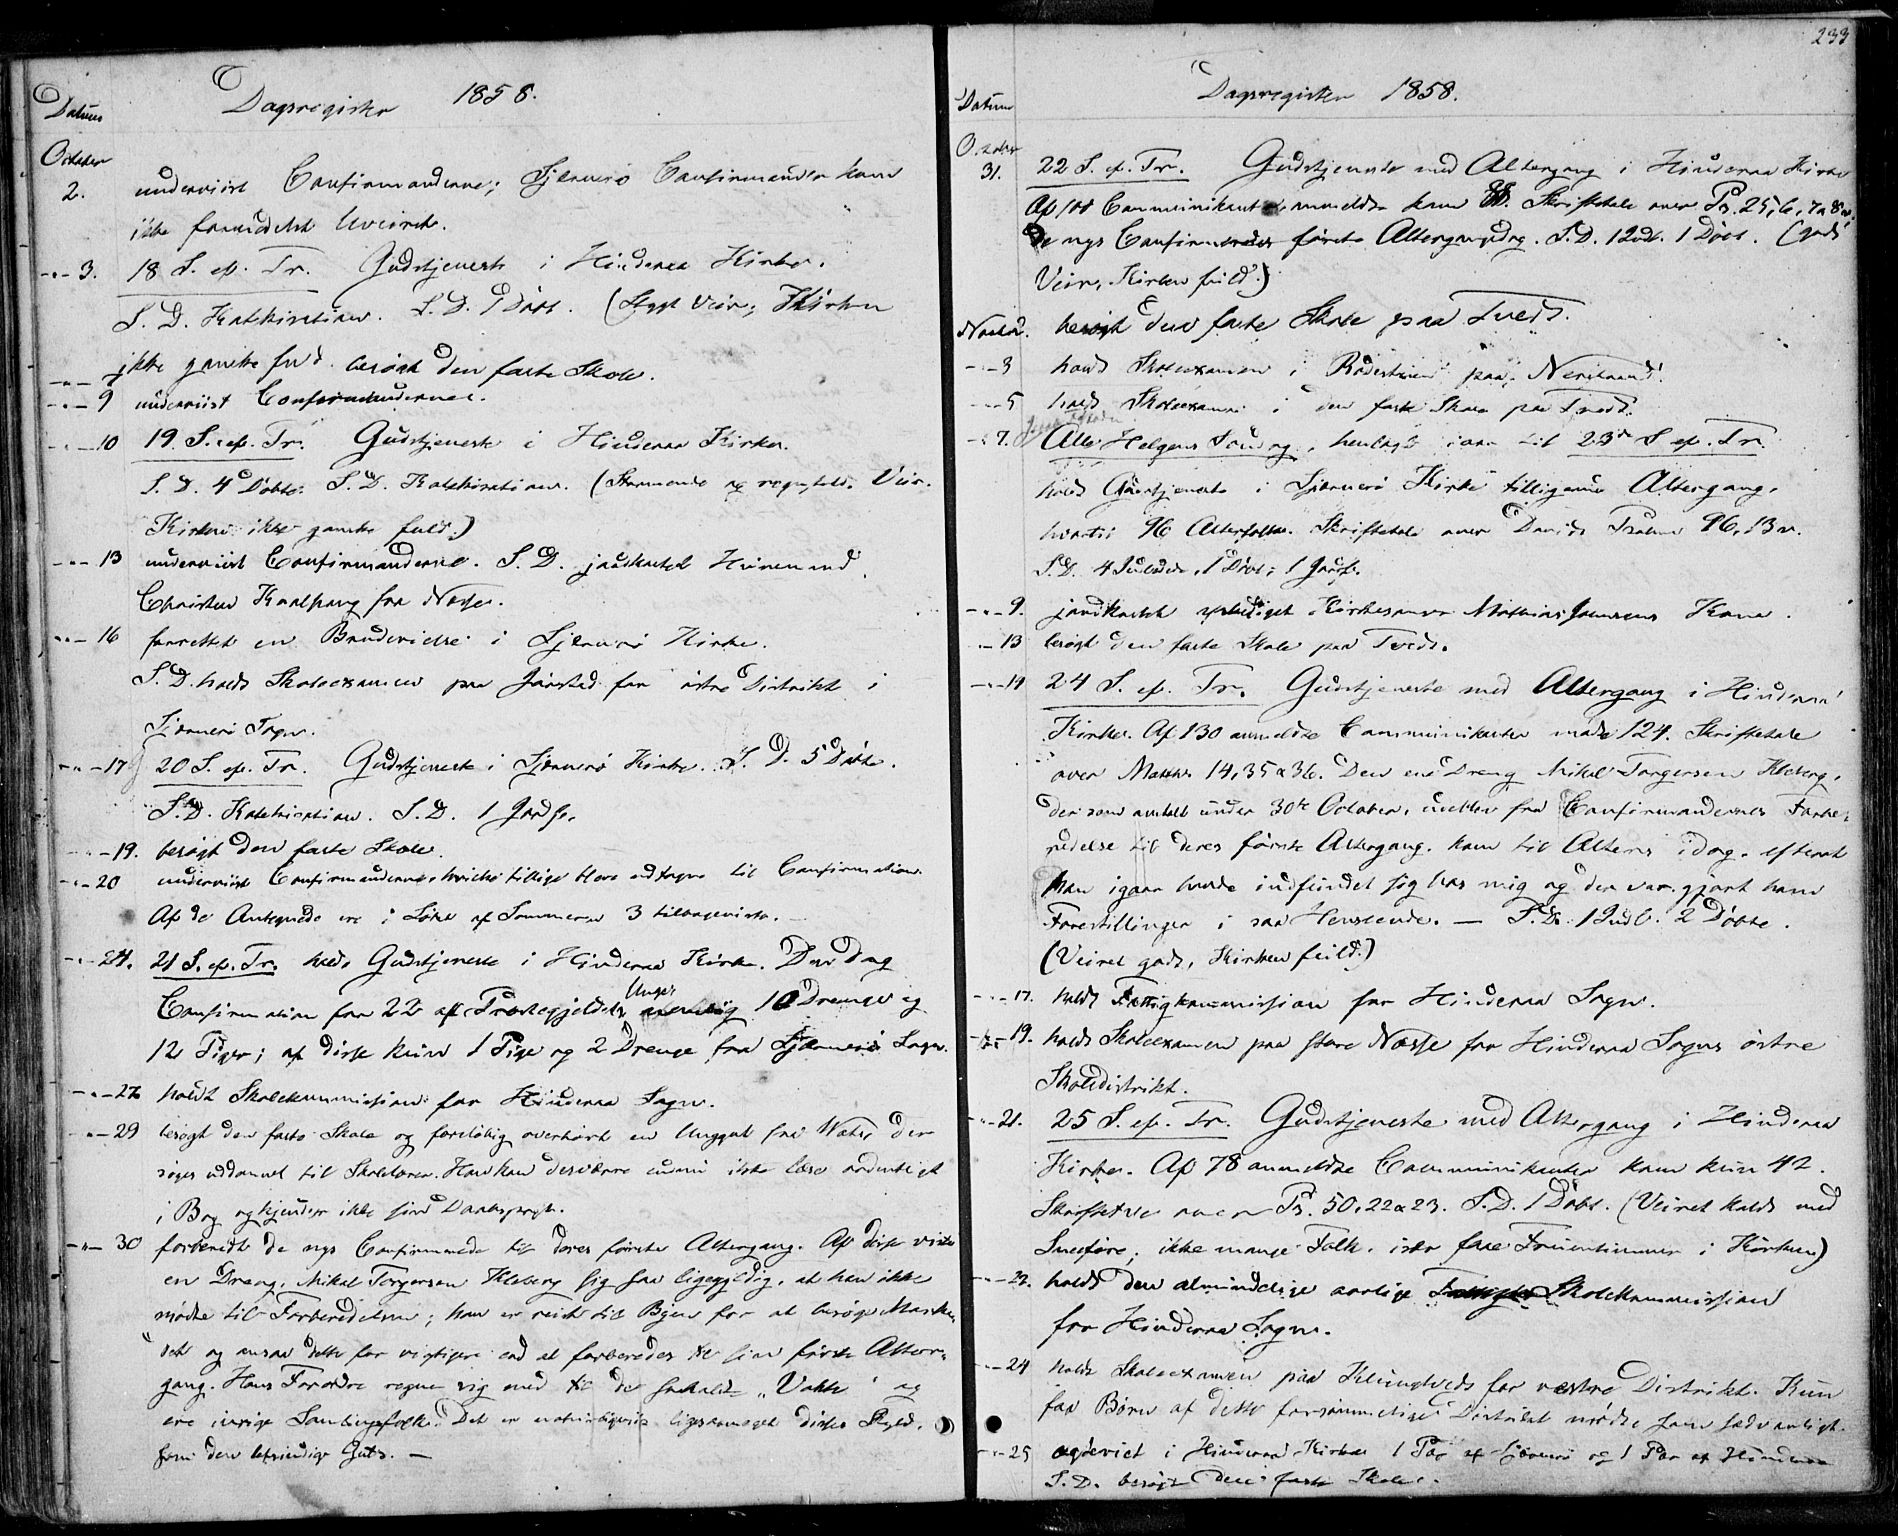 Datum
Dagsregister 1858.
October
2. underviist Confirmanderne; Sjernerö Confirmander kom
ikke formedelst Uveiret.
-"- 3. 18 S. ef. Tr. Gudstjeneste i Hinderaa Kirke.
S. D. Katekisation. S. D. 1 Döbt. (Stygt Veir; Kirken
ikke ganske fuld.
-"- 7 besøgt den faste Skole.
-"- 9 underviist Confirmanderne.
-"- 10 19. S. ef. Tr. Gudstjeneste i Hinderaa Kirke.
S. D. 4 Döbte. S. D. Katekisation. (Stormende og regnfuldt Veir.
Kirken ikke ganske fuld.)
-"- 13 underviist Confirmanderne. S. D. jordkastet Huusmand
Christen fra Næsse.
-"- 16 forrettet en Brudevielse i Sjernerö Kirke.
S. D. holdt Skoleexamen paa for östre Distrikt i
Sjernerö Sogn.
-"- 17 20 S. ef. Tr. Gudstjeneste i Sjernerö Kirke. S. D. 5 Döbte.
S. D. Katekisation. S. D. 1 Jordf.
-"- 19. besøgt den faste Skole.
-"- 20 underviist Confirmanderne, hvilke tillige bleve udtagne til Confirmation.
Af de Antegnede ere i Løbet af Sommeren 3 tilbageviste.
-"- 24. 21 S. ef. Tr. holdt Gudstjeneste i Hinderaa Kirke. Den Dag
Confirmation for 22 af Præstegjeldets Unge, nemlig 10 Drenge og
12 Piger; af disse kun 1 Pige og 2 Drenge fra Sjernerö Sogn.
-"- 27 holdt Skolekommission for Hinderaa Sogn.
-"- 29 besøgt den faste Skole og foreløbig overhørt en Unggut fra der
søges uddannet til Skolelærer. Han kan desværre endnu ikke læse ordentligt
i Bog og kjender ikke sine
-"- 30 forberedt de nys Confirmerede til deres første Altergang. Af disse viste
en Dreng, Mikal Torgersen Kleberg sig saa ligegyldig, at han ikke
mødte til Forberedelsen; han er reist til Byen for at besøge Marke-
det og ansaa dette for vigtigere end at forberedes til sin første Alter-
gang. Hans Forældre regne sig med til de saakaldte "Vakte" og
ere ivrige Samlingsfolk. Det er naturligviis ligesaameget disses Skyld,
som den letsindige Guts. —
233
Datum
Dagsregister 1858.
October
31. 22 S. ef. Tr. Gudstjeneste med Altergang i Hinderaa Kirke
Af 100 Communikanter anmeldte kom 88. Skriftetale over Ps. 25, 6, 7 & 8 v.
De nys Confirmeredes første Altergangsdag. S. D. 1 Indl. 1 Döbt. (godt
Veir, Kirken fuld.)
Novbr 2. besøgt den faste Skole paa Tvedt.
-"- 3 holdt Skoleexamen i paa
-"- 5 holdt Skoleexamen i den faste Skole paa Tvedt.
-"- 7. Alle Helgens Søndag, henlagt i aar til 23de S. ef. Tr.
holdt Gudstjeneste i Sjernerö Kirke tilligemed Altergang,
hvorti 96 Alterfolk. Skriftetale over Davids Psalme 96, 13 v.
S. D. 4 Indledede, 1 Døbt; 1 Jordf.
-"- 9. jordkastet Kirkesanger Mathias Kone.
-"- 13 besøgt den faste Skole paa Tvedt.
-"- 14 24 S. ef. Tr. Gudstjeneste med Altergang i Hinderaa
Kirke. Af 130 anmeldte Communikanter mødte 124. Skriftetale
over Matth. 14, 35 & 36. Den ene Dreng Mikal Torgersen Kleberg,
der som anført under 30te October, udeblev fra Confirmandernes Forbe-
redelse til deres første Altergang, kom til Alters idag, efterat
han igaar havde indfundet sig hos mig og der var gjort ham
Forestillinger i saa Henseende. — S. D. 1 Indl. 2 Døbte.
(Veiret godt, Kirken fuld.)
-"- 17. holdt Fattigkommission for Hinderaa Sogn.
-"- 19. holdt Skoleexamen paa store Næsse for Hinderaa Sogns östre
Skoledistrikt.
-"- 21. 25 S. ef. Tr. Gudstjeneste med Altergang i Hinderaa
Kirke. Af 78 anmeldte Communikanter kom kun 42.
Skriftetale over Ps. 50, 22 & 23. S. D. 1 Döbt. (Veiret koldt med
Sneeföre; ikke mange Folk, især faae Fruentimmer i Kirken)
-"- 22. holdt den almindelige aarlige Skolekommission
for Hinderaa Sogn.
-"- 24 holdt Skoleexamen paa for vestre Distrikt. Kun
faa Børn af dette forsømmelige Distrikt mødte som sædvanligt.
-"- 25 copuleret i Hinderaa Kirke 1 Par af Sjernerö og 1 Par af Hinderaa
S. D. besøgt den faste Skole.